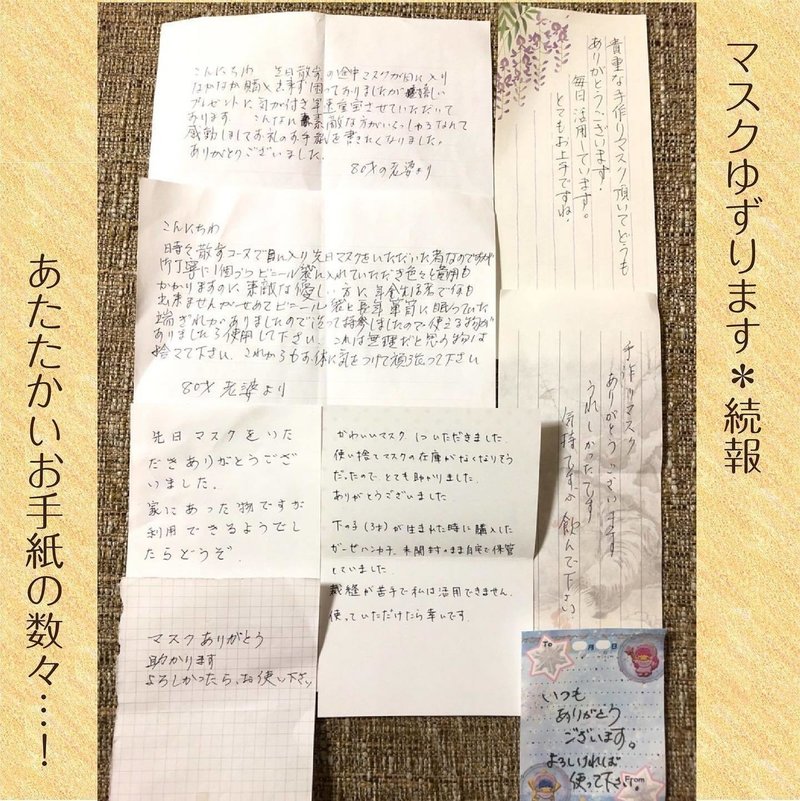 マスクゆずります＊続報
あたたかいお手紙の数々…！
こんにちわ 先日散歩の途中マスクが目に入り
なかなか購入出来ず困っておりましたが嬉しい
プレゼントに気が付き早速重宝させていただいて
おります こんなに素敵な方がいらっしゃるなんて
感動しましてお礼のお手紙を書きたくなりました。
ありがとうございました。
80才の老婆より
貴重な手作りマスク頂いてどうも
ありがとうございます!
毎日活用しています。
とてもお上手ですね!
こんにちわ
時々散歩コースで目に入り先日マスクをいただいた者なのですが
丁寧に1個づつビニール袋に入れていただき色々と費用も
かかりますのに素敵な優しい方に年金生活で何も
出来ませんがせめてビニール袋と長年箪笥に眠っていた
端ぎれがありましたので洗って持参しましたので使える物が
ありましたら使用して下さい これは無理だと思う物は
捨てて下さい これからもお体に気をつけて頑張って下さい
80才 老婆より
手作りマスク
ありがとうございます
うれしかったです
気持ちですが飲んで下さい
先日マスクをいた
だきありがとうござい
ました。
家にあった物ですが
利用できるようでし
たらどうぞ。
かわいいマスク 1ついただきました。
使い捨てマスクの在庫がなくなりそう
だったので、とても助かりました。
ありがとうございました
下の子(3才)が生まれた時に購入した
ガーゼハンカチ、未開封のまま自宅で保管
していました。
裁縫が苦手で私は活用できません。
使っていただけたら幸いです。
マスクありがとう
助かります
よろしかったら、お使い下さい
To 月 日
いつも
ありがとう
ございます。
よろしければ
使って下さい。
From